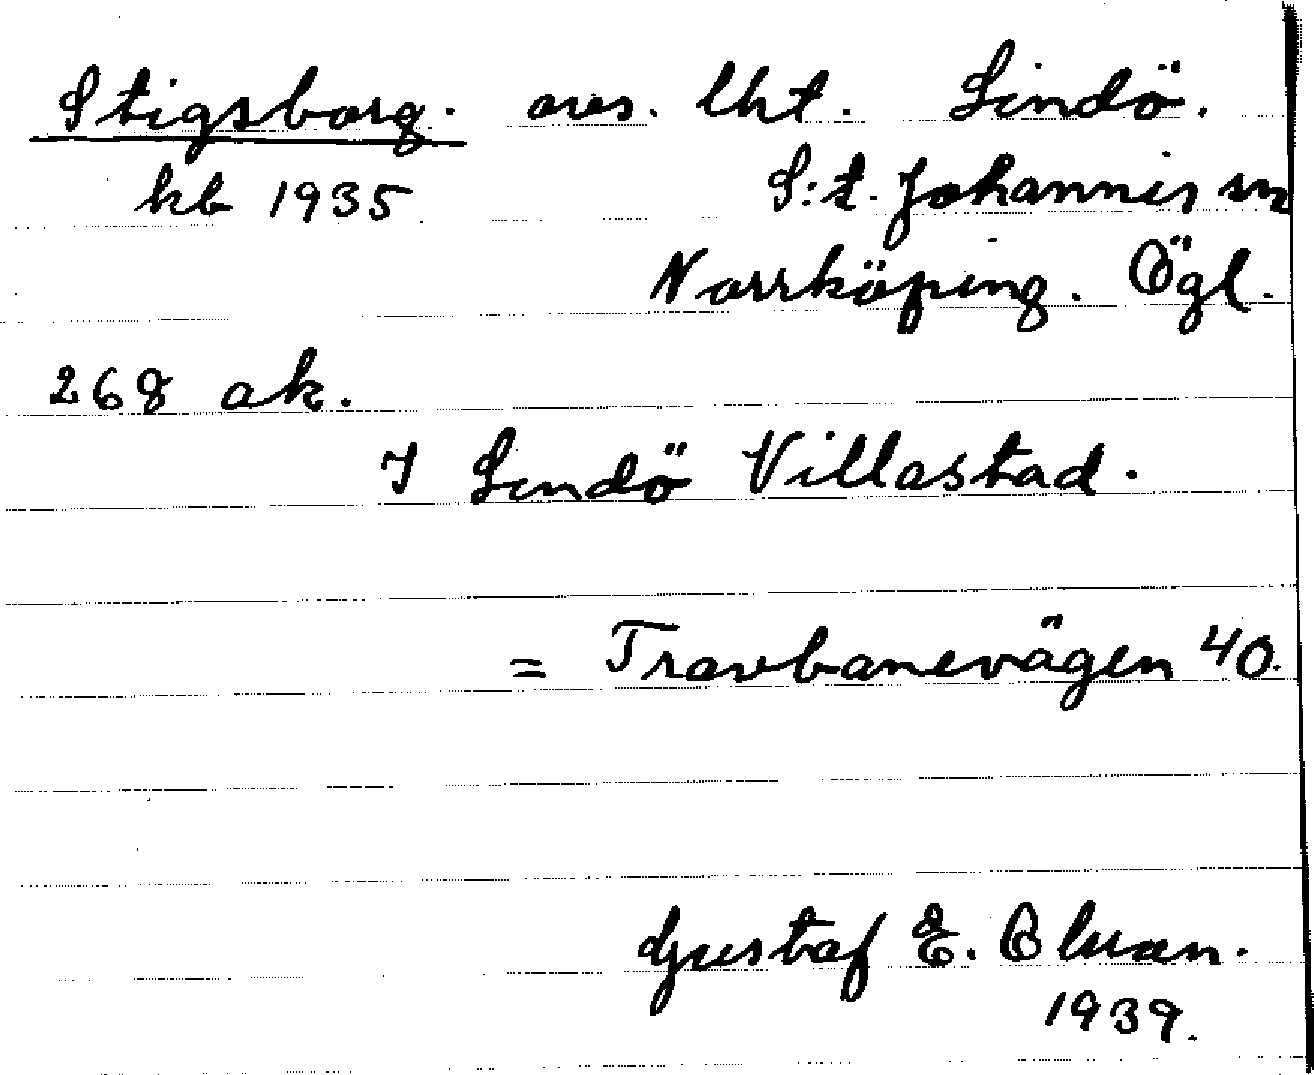 Stigsborg. avs. lht. Lindö.
kb 1935 S:t. Johannis sn
Norrköping. Ögl.
268 ak.
I Lindö Villastad.
= Travbanevägen 40.
Gustaf E.
1939.